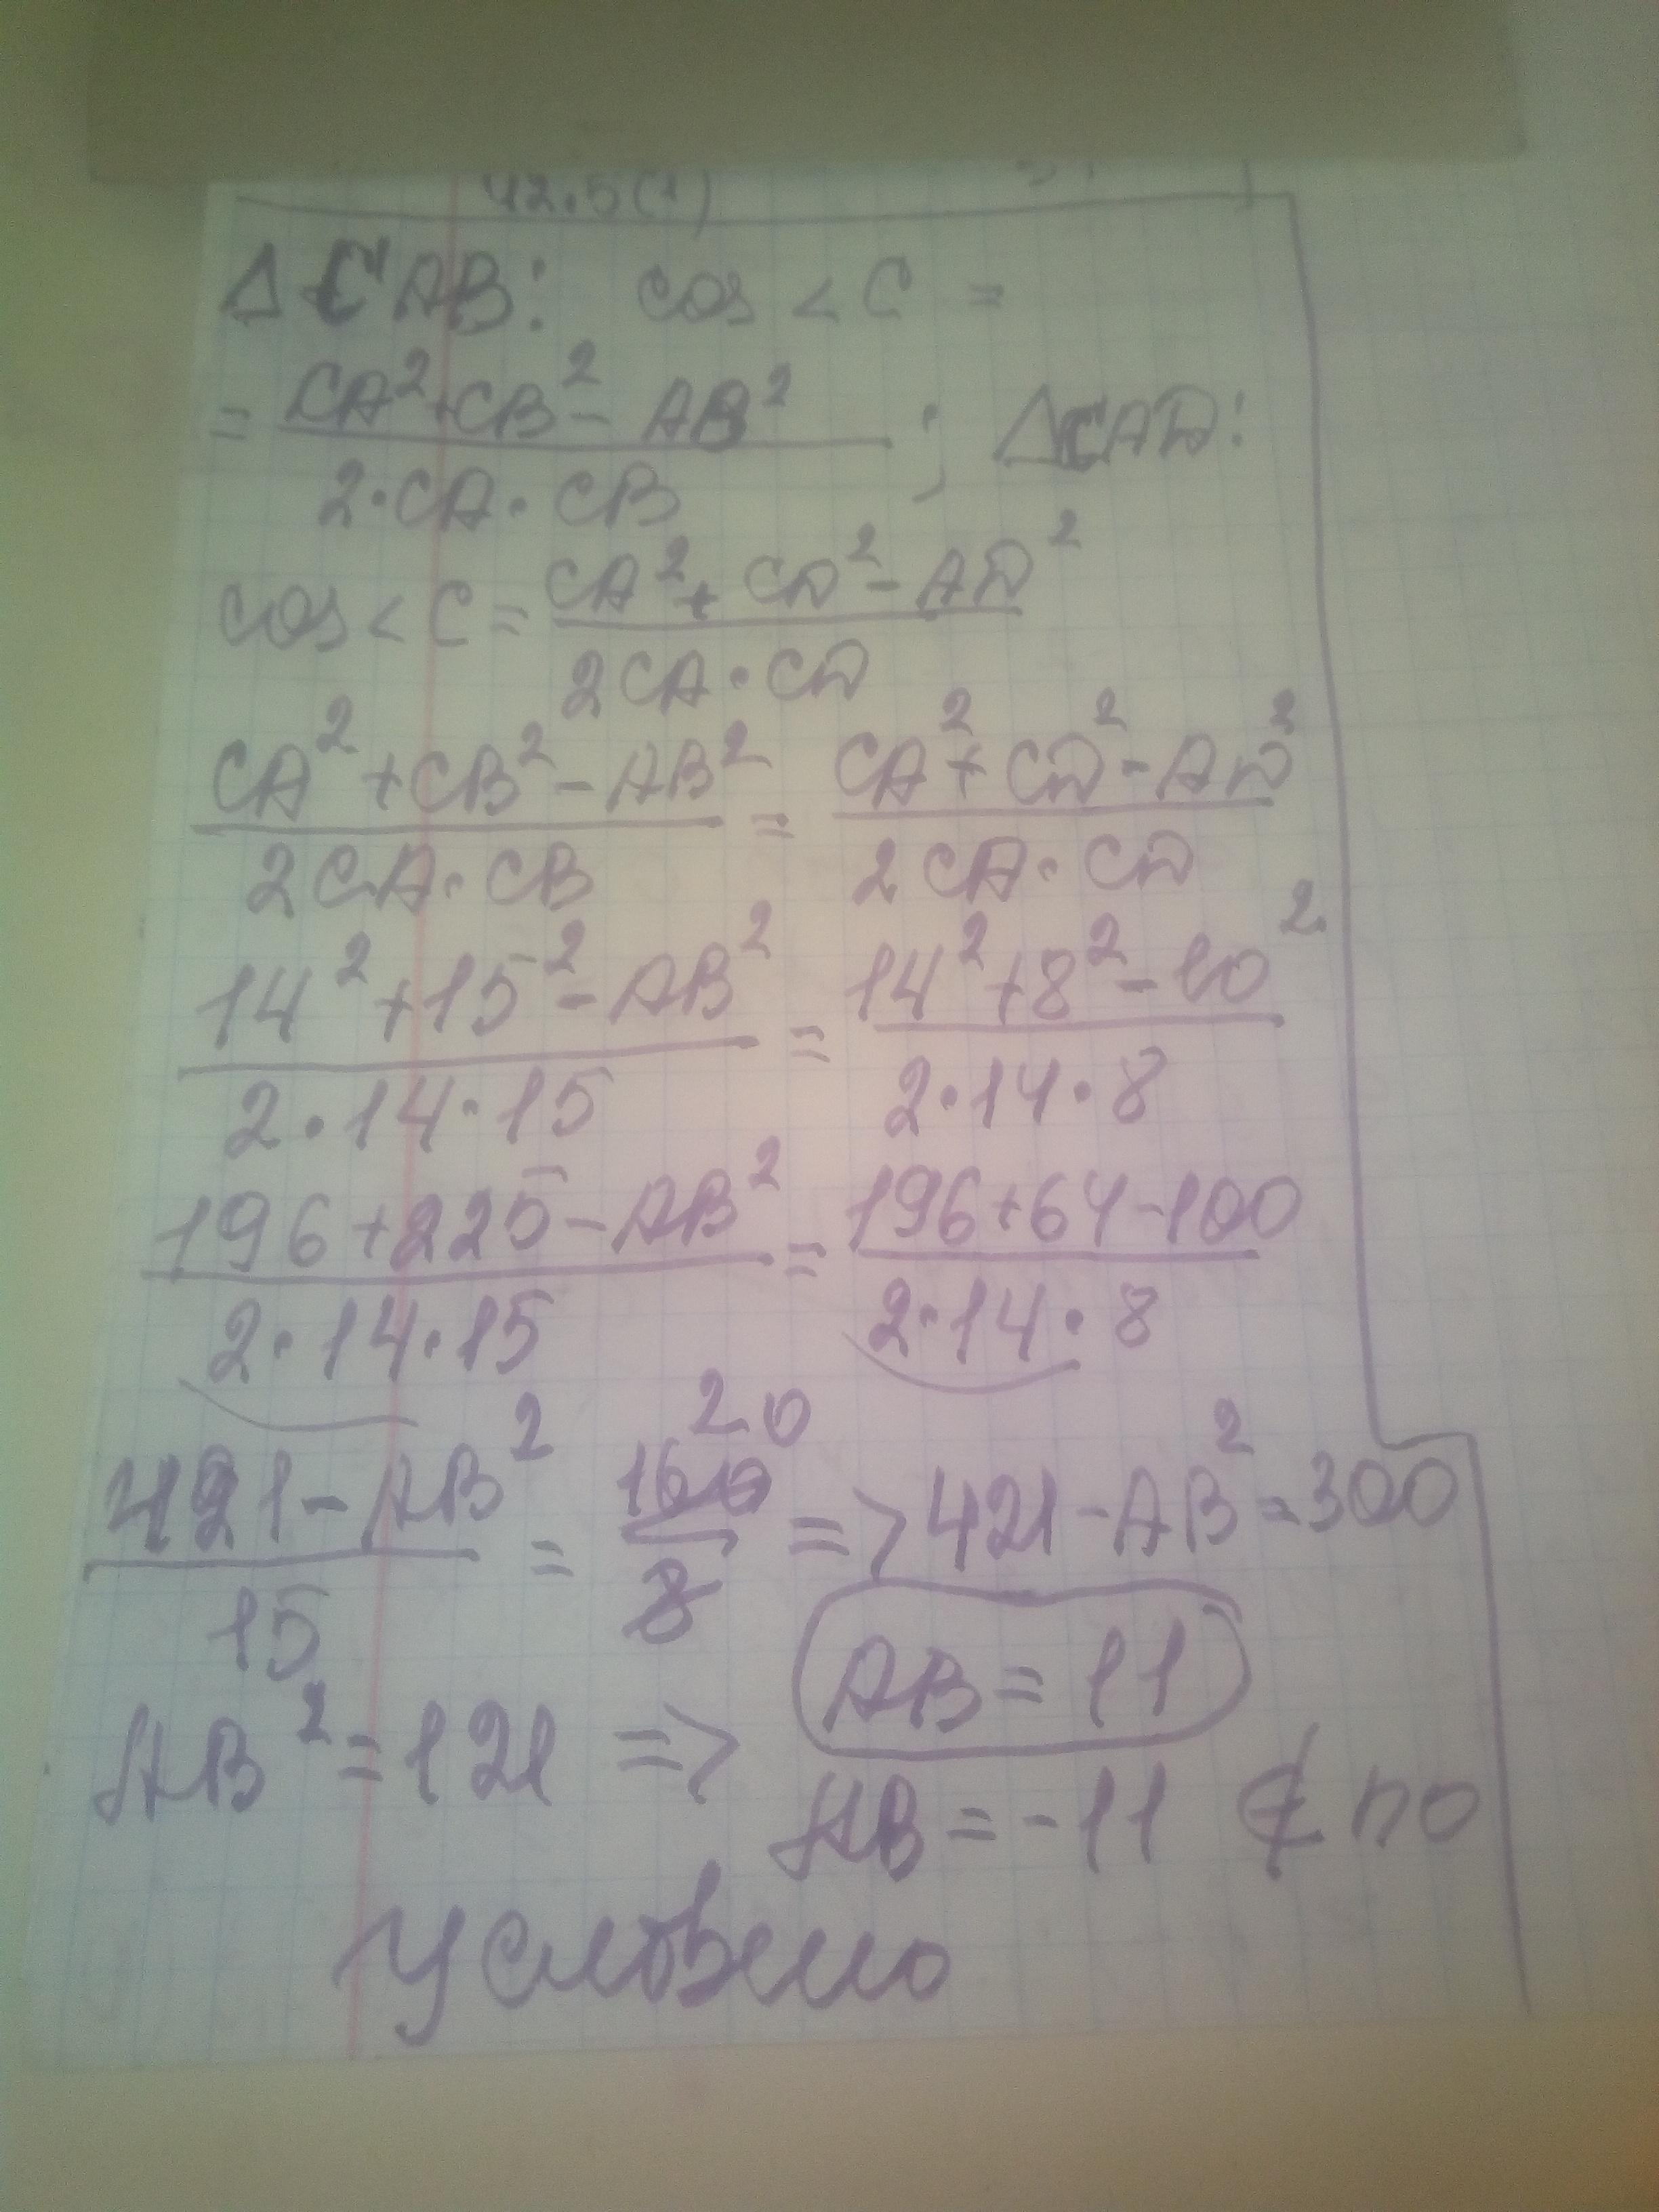 42.5(1)
Δ CAB: cos < C =
= CA² + CB² - AB² / 2·CA·CB ; Δ CAD:
cos < C = CA² + CD² - AD² / 2CA·CD
CA² + CB² - AB² / 2CA·CB = CA² + CD² - AD² / 2CA·CD
14² + 15² - AB² / 2·14·15 = 14² + 8² - 10² / 2·14·8
196 + 225 - AB² / 2·14·15 = 196 + 64 - 100 / 2·14·8
20
421 - AB² / 15 = 160 / 8 => 421 - AB² = 300
AB² = 121 => AB = 11
AB = -11 ∉ по
условию